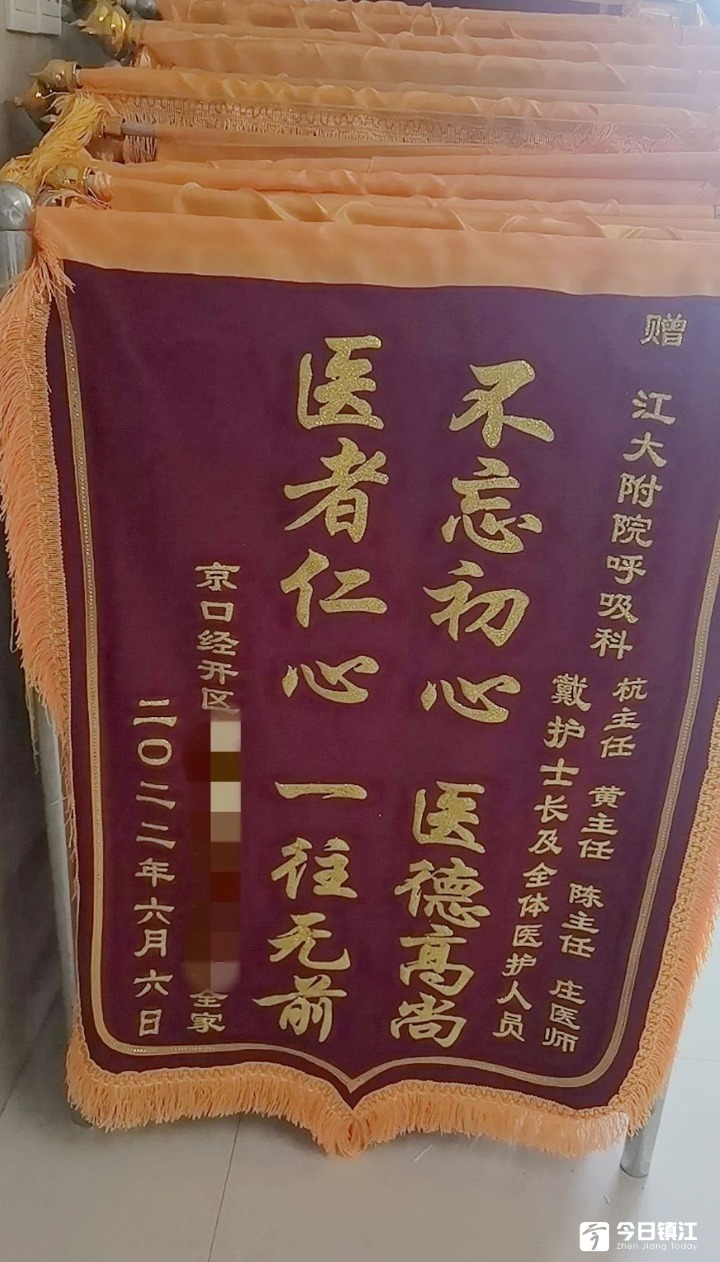 赠 江大附院呼吸科 杭主任 黄主任 陈主任 庄医师
戴护士长及全体医护人员
不忘初心 医德高尚
医者仁心 一往无前
京口经开区
全家
二〇二二年六月六日
今日镇江
Zhen Jiang Today